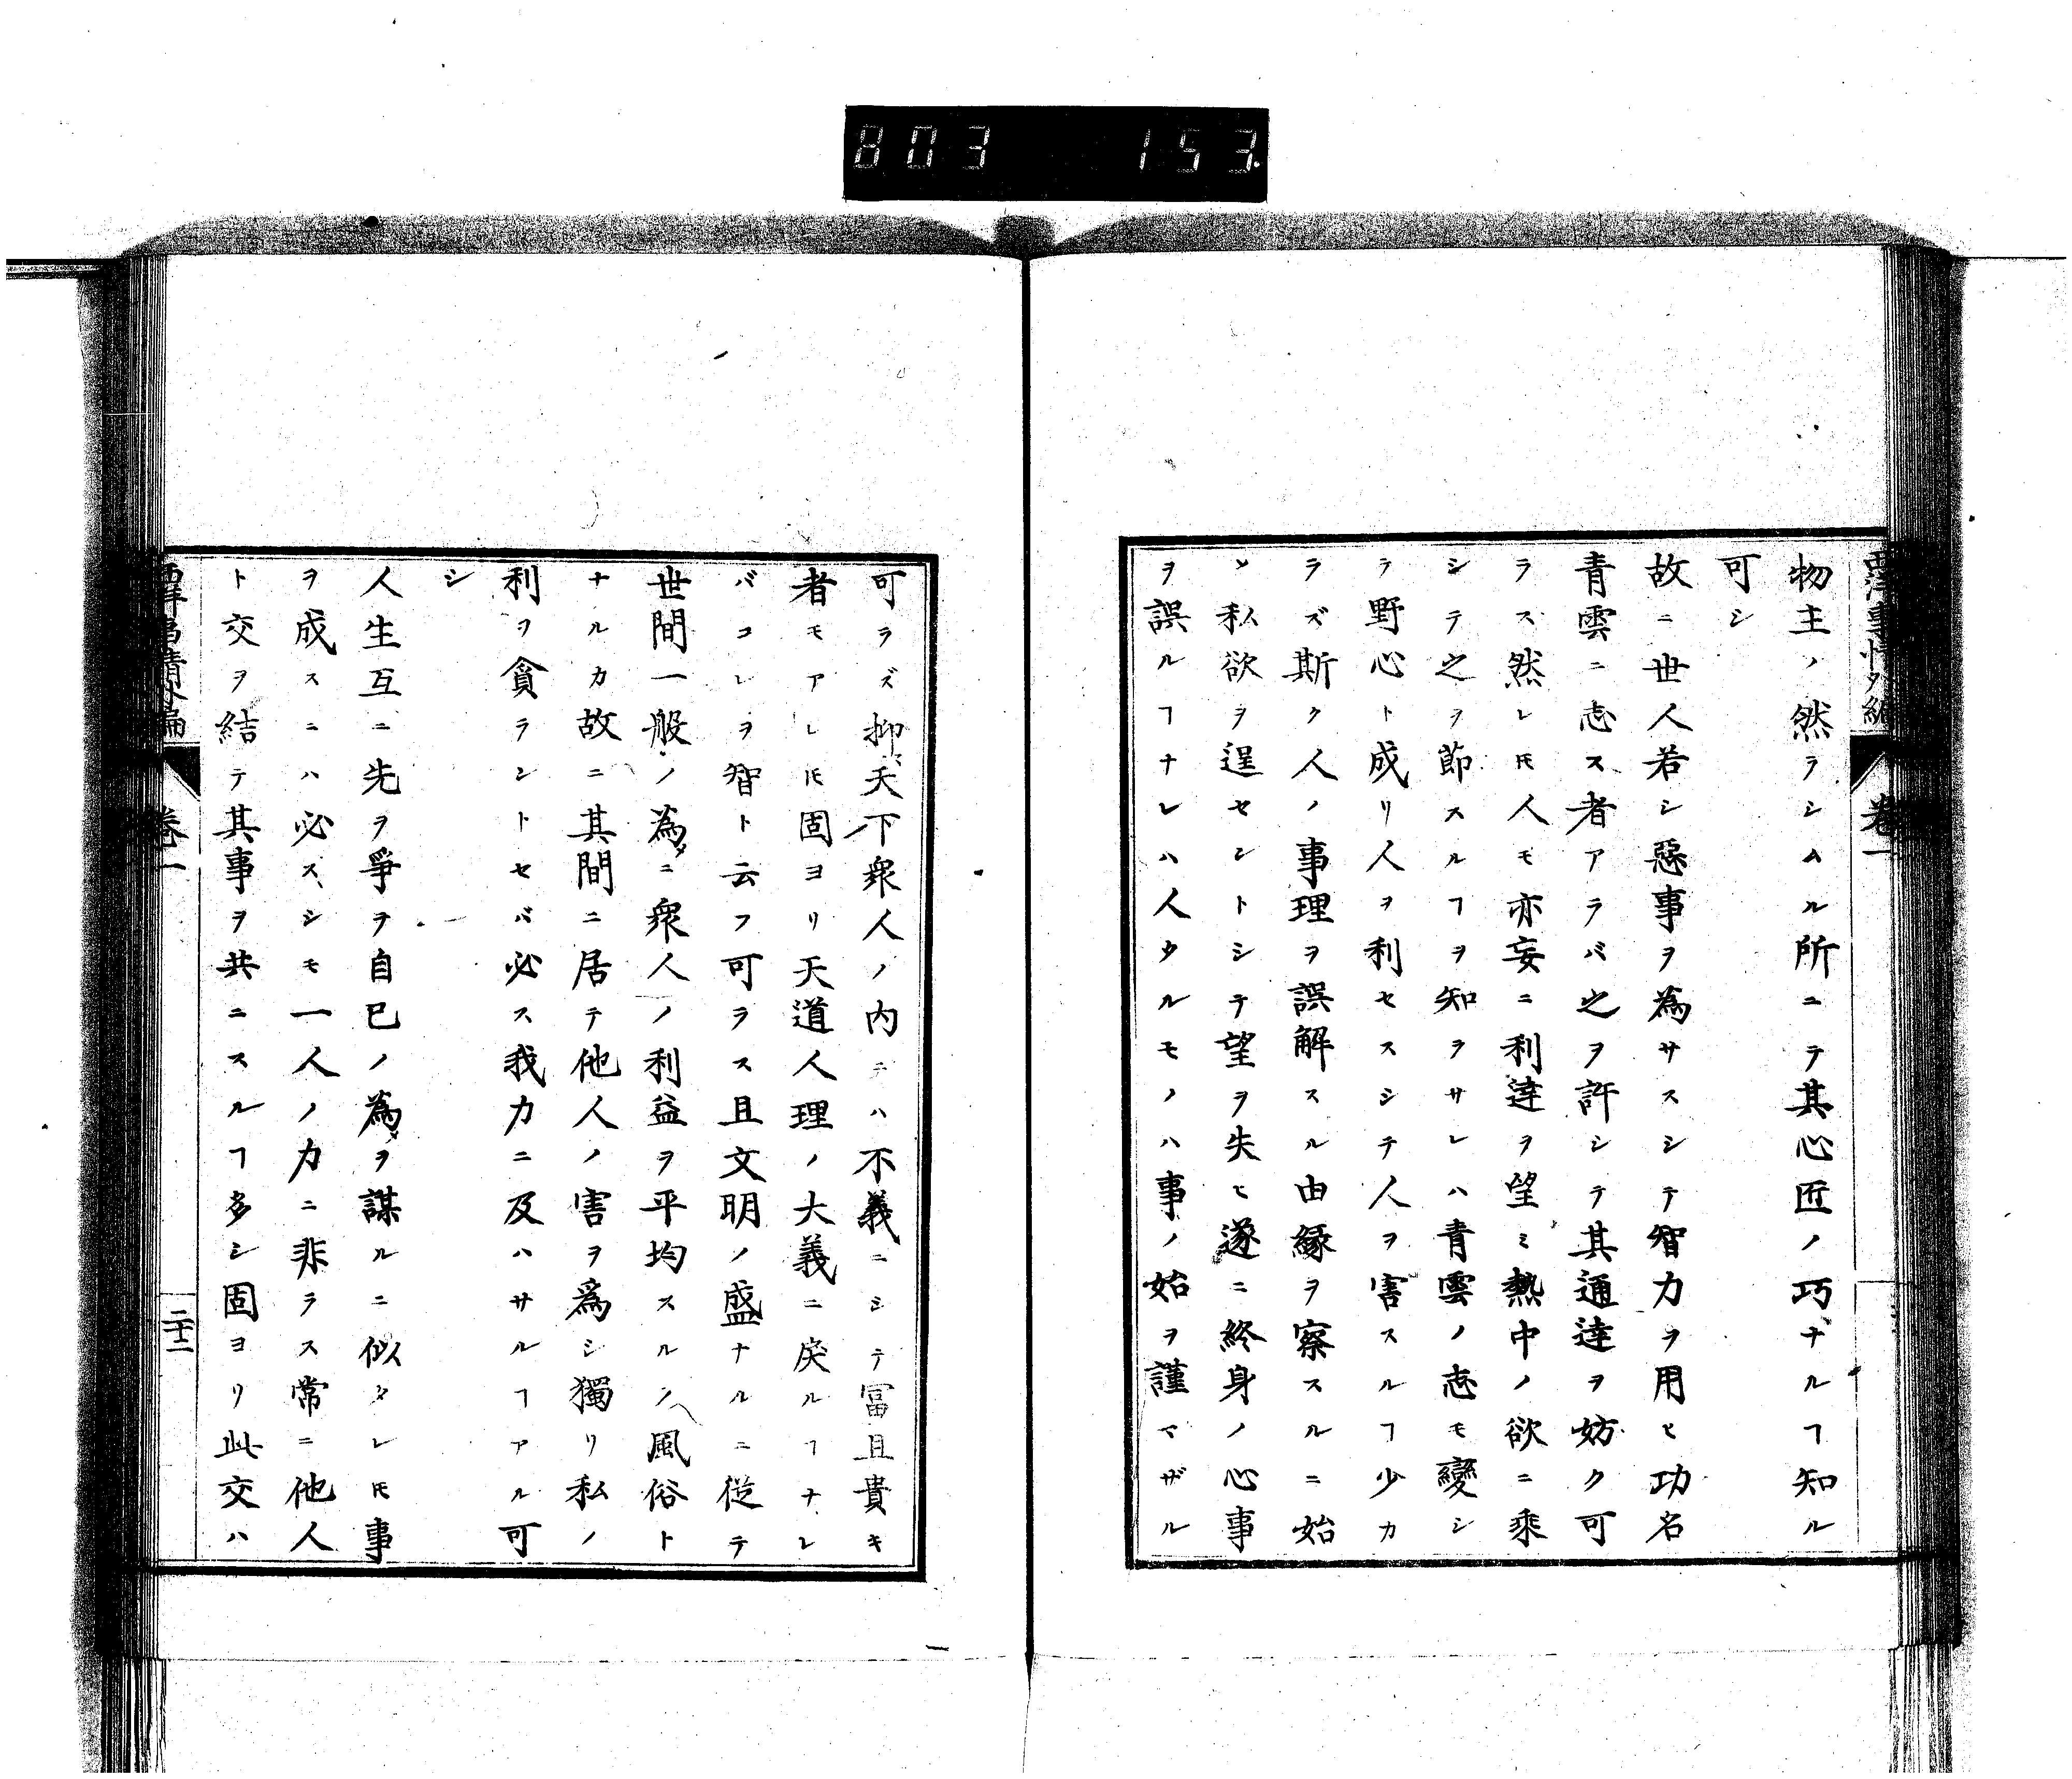 803 153
西洋事情外編
卷一
物主ノ然ラシムル所ニテ其心匠ノ巧ナルヿ知ル
可シ
故ニ世人若シ惡事ヲ為サスシテ智力ヲ用ヒ功名
青雲ニ志ス者アラバ之ヲ許シテ其通達ヲ妨ク可
ラス然レ𪜈人モ亦妄ニ利達ヲ望ミ熱中ノ欲ニ乘
シテ之ヲ節スルヿヲ知ラサレハ青雲ノ志モ變シ
テ野心ト成リ人ヲ利セスシテ人ヲ害スルヿ少カ
ラズ斯ク人ノ事理ヲ誤解スル由縁ヲ察スルニ始
ソ私欲ヲ逞セントシテ望ヲ失ヒ遂ニ終身ノ心事
ヲ誤ルヿナレハ人タルモノハ事ノ始ヲ謹マザル
可ラズ抑〻天下衆人ノ内ニハ不義ニシテ富且貴キ
者モアレ𪜈固ヨリ天道人理ノ大義ニ戾ルヿナレ
バコレヲ智ト云フ可ラス且文明ノ盛ナルニ從テ
世間一般ノ為メニ衆人ノ利益ヲ平均スルノ風俗ト
ナルカ故ニ其間ニ居テ他人ノ害ヲ爲シ獨リ私ノ
利ヲ貪ラントセバ必ス我力ニ及ハサルヿアル可
シ
人生互ニ先ヲ爭ヲ自己ノ為メヲ謀ルニ似タレ𪜈事
ヲ成スニハ必スシモ一人ノ力ニ非ラス常ニ他人
ト交ヲ結テ其事ヲ共ニスルヿ多シ固ヨリ此交ハ
西洋事情外編
卷一
二十二